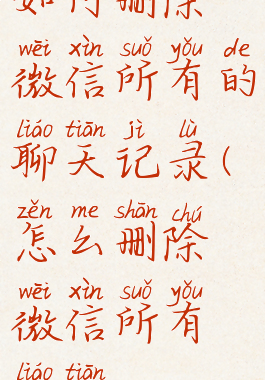 如何删除
wēi xìn suǒ yǒu de
微信所有的
liáo tiān jì lù
聊天记录(
zěn me shān chú
怎么删除
wēi xìn suǒ yǒu
微信所有
liáo tiān